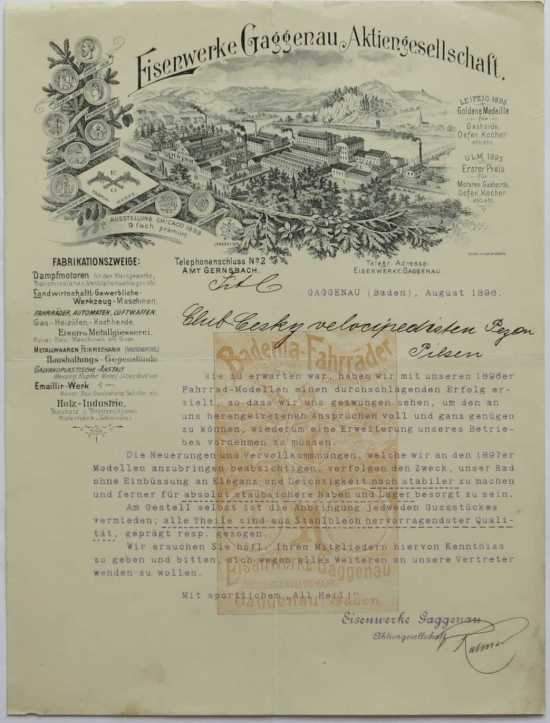 Eisenwerke Gaggenau, Aktiengesellschaft.
LEIPZIG 1892
Goldene Medaille
für
Gasheiz-
Oefen, Kocher
ULM 1893
Erster Preis
für
Motoren, Gasheiz-
Oefen, Kocher
E G
AUSSTELLUNG CHICAGO 1893
9 fach prämiirt
FABRIKATIONSZWEIGE:
Dampfmotoren
Landwirtschaftl.-Gewerbliche-
Werkzeug-Maschinen,
FAHRRÄDER, AUTOMATEN, LUFTWAFFEN,
Gas-Heizöfen-Kochherde,
Eisen u. Metallgiesserei.
METALLWAAREN
Haushaltungs-Gegenstände
GALVANOPLASTISCHE-ANSTALT
Emaillir-Werk
Holz-Industrie,
Telephonanschluss No 2
AMT GERNSBACH.
Telegr. Adresse:
EISENWERKE GAGGENAU
GAGGENAU (Baden), August 1896.
Club Cesky velocipedisten
Pilsen
Badenia-Fahrräder
Wie zu erwarten war, haben wir mit unseren 1896er
Fahrrad-Modellen einen durchschlagenden Erfolg er-
zielt, so dass wir uns gezwungen sehen, um den an
uns herangetretenen Ansprüchen voll und ganz genügen
zu können, wiederum eine Erweiterung unseres Betrie-
bes vornehmen zu müssen.
Die Neuerungen und Vervollkommnungen, welche wir an den 1897er
Modellen anzubringen beabsichtigen, verfolgen den Zweck, unser Rad
ohne Einbüssung an Eleganz und Leichtigkeit noch stabiler zu machen
und ferner für absolut staubsichere Naben und Lager besorgt zu sein.
Am Gestell selbst ist die Anbringung jedweden Gussstückes
vermieden; alle Theile sind aus Stahlblech hervorragendster Quali-
tät, geprägt resp. gezogen.
Wir ersuchen Sie höfl. Ihren Mitgliedern hiervon Kenntniss
zu geben und bitten, sich wegen alles Weiteren an unsere Vertreter
wenden zu wollen.
Eisenwerke Gaggenau
Gaggenau-Baden
Mit sportlichem „All Heil!"
Eisenwerke Gaggenau
Aktiengesellschaft